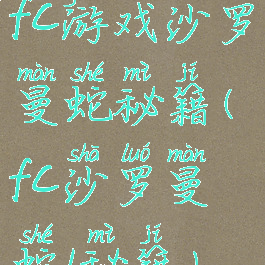 fc游戏沙罗
màn shé mì jí
曼蛇秘籍(
shā luó màn
fc沙罗曼
shé mì jí
蛇秘籍)